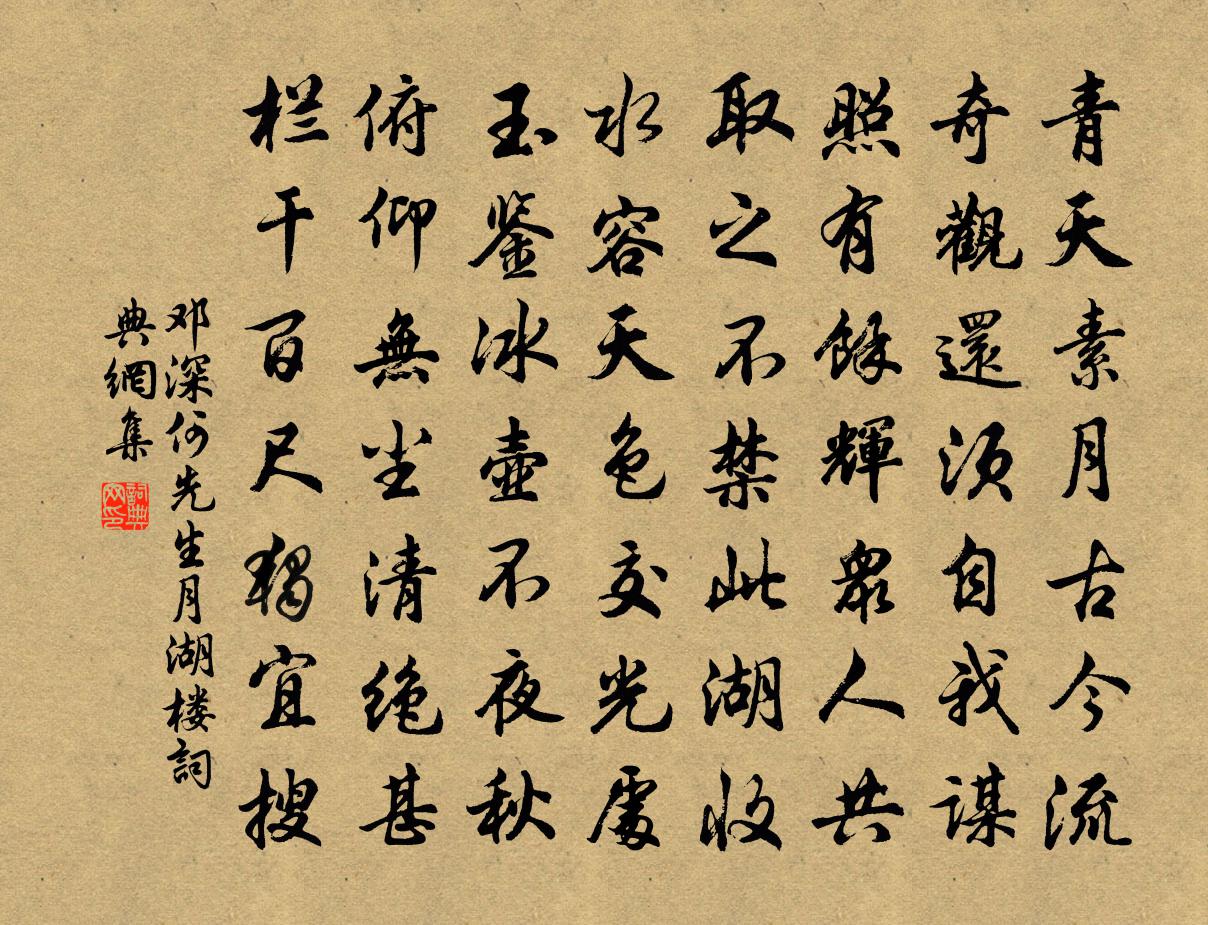 青天素月古今流
奇觀還須自我謀
照有餘輝衆人共
取之不禁此湖收
水容天色交光處
玉鉴冰壺不夜秋
俯仰無尘清绝甚
栏干百尺独宜搜
邓深何先生月湖楼詞
典網集
詞典
网印